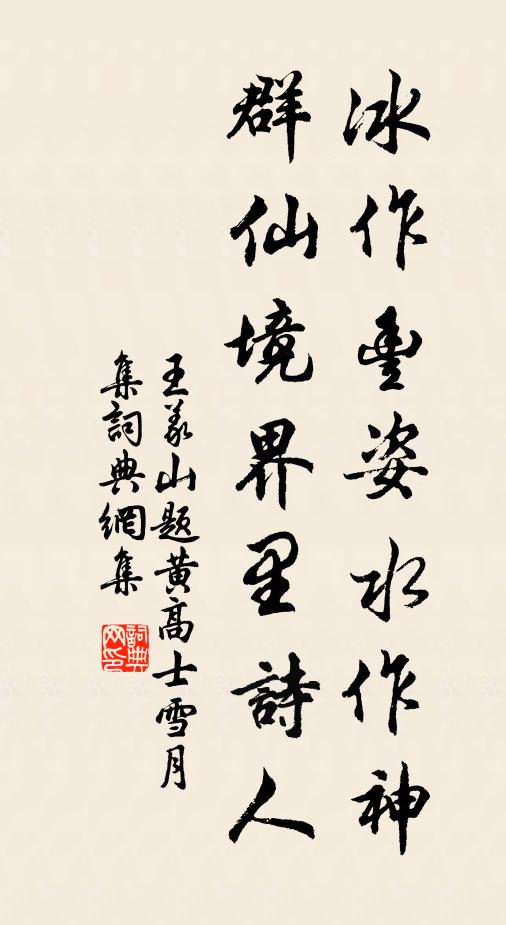 冰作豊姿水作神
群仙境界里詩人
王義山題黄高士雪月
集詞典網集
詞典网印